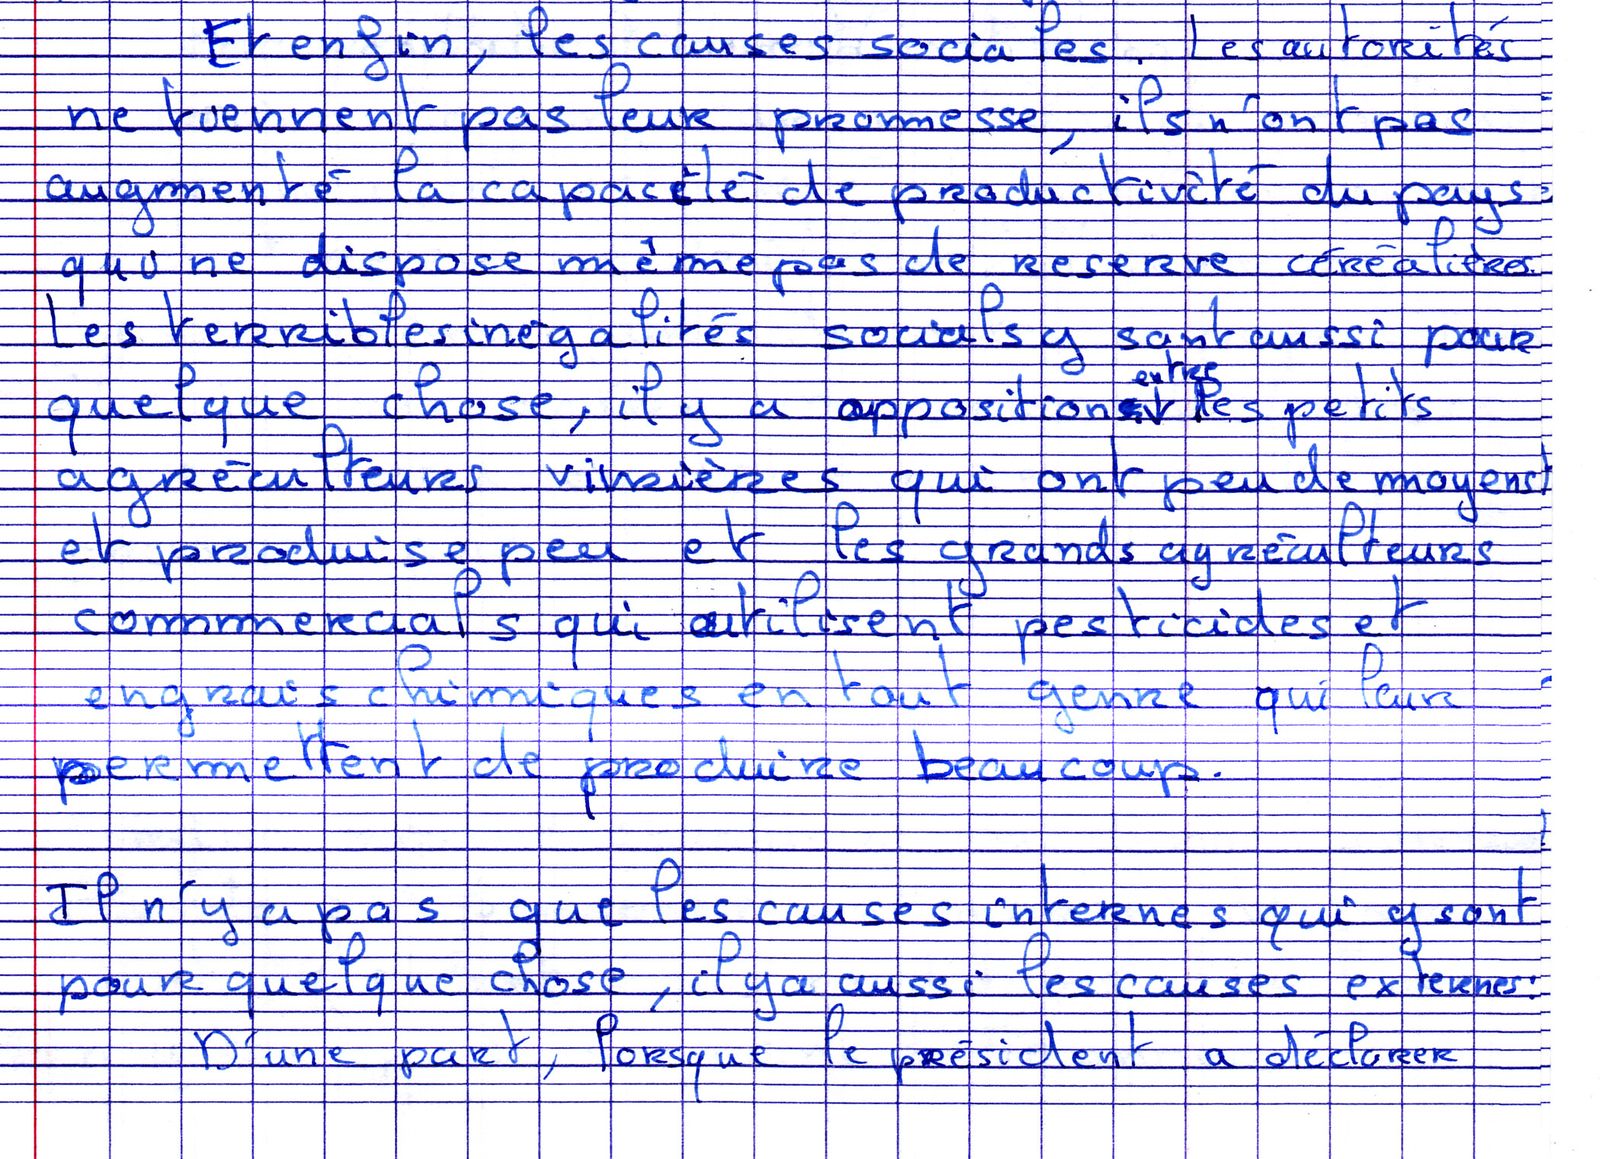 Et enfin, les causes sociales. Les autorités
ne tiennent pas leur prommesse, ils n'ont pas
augmenté la capacité de productivité du pays
qui ne dispose même pas de reserve céréalières.
Les terribles inégalités socials y sont aussi pour
quelque chose, il y a oppositions entres les petits
agréculteurs vivrières qui ont peu de moyens
et produise peu et les grands agréculteurs
commercials qui utilisent pesticides et
engrais chimiques en tout genre qui leur
permettent de produire beaucoup.
Il n'y a pas que les causes internes qui y sont
pour quelque chose, il y a aussi les causes externes:
D'une part, lorsque le président a déclarer